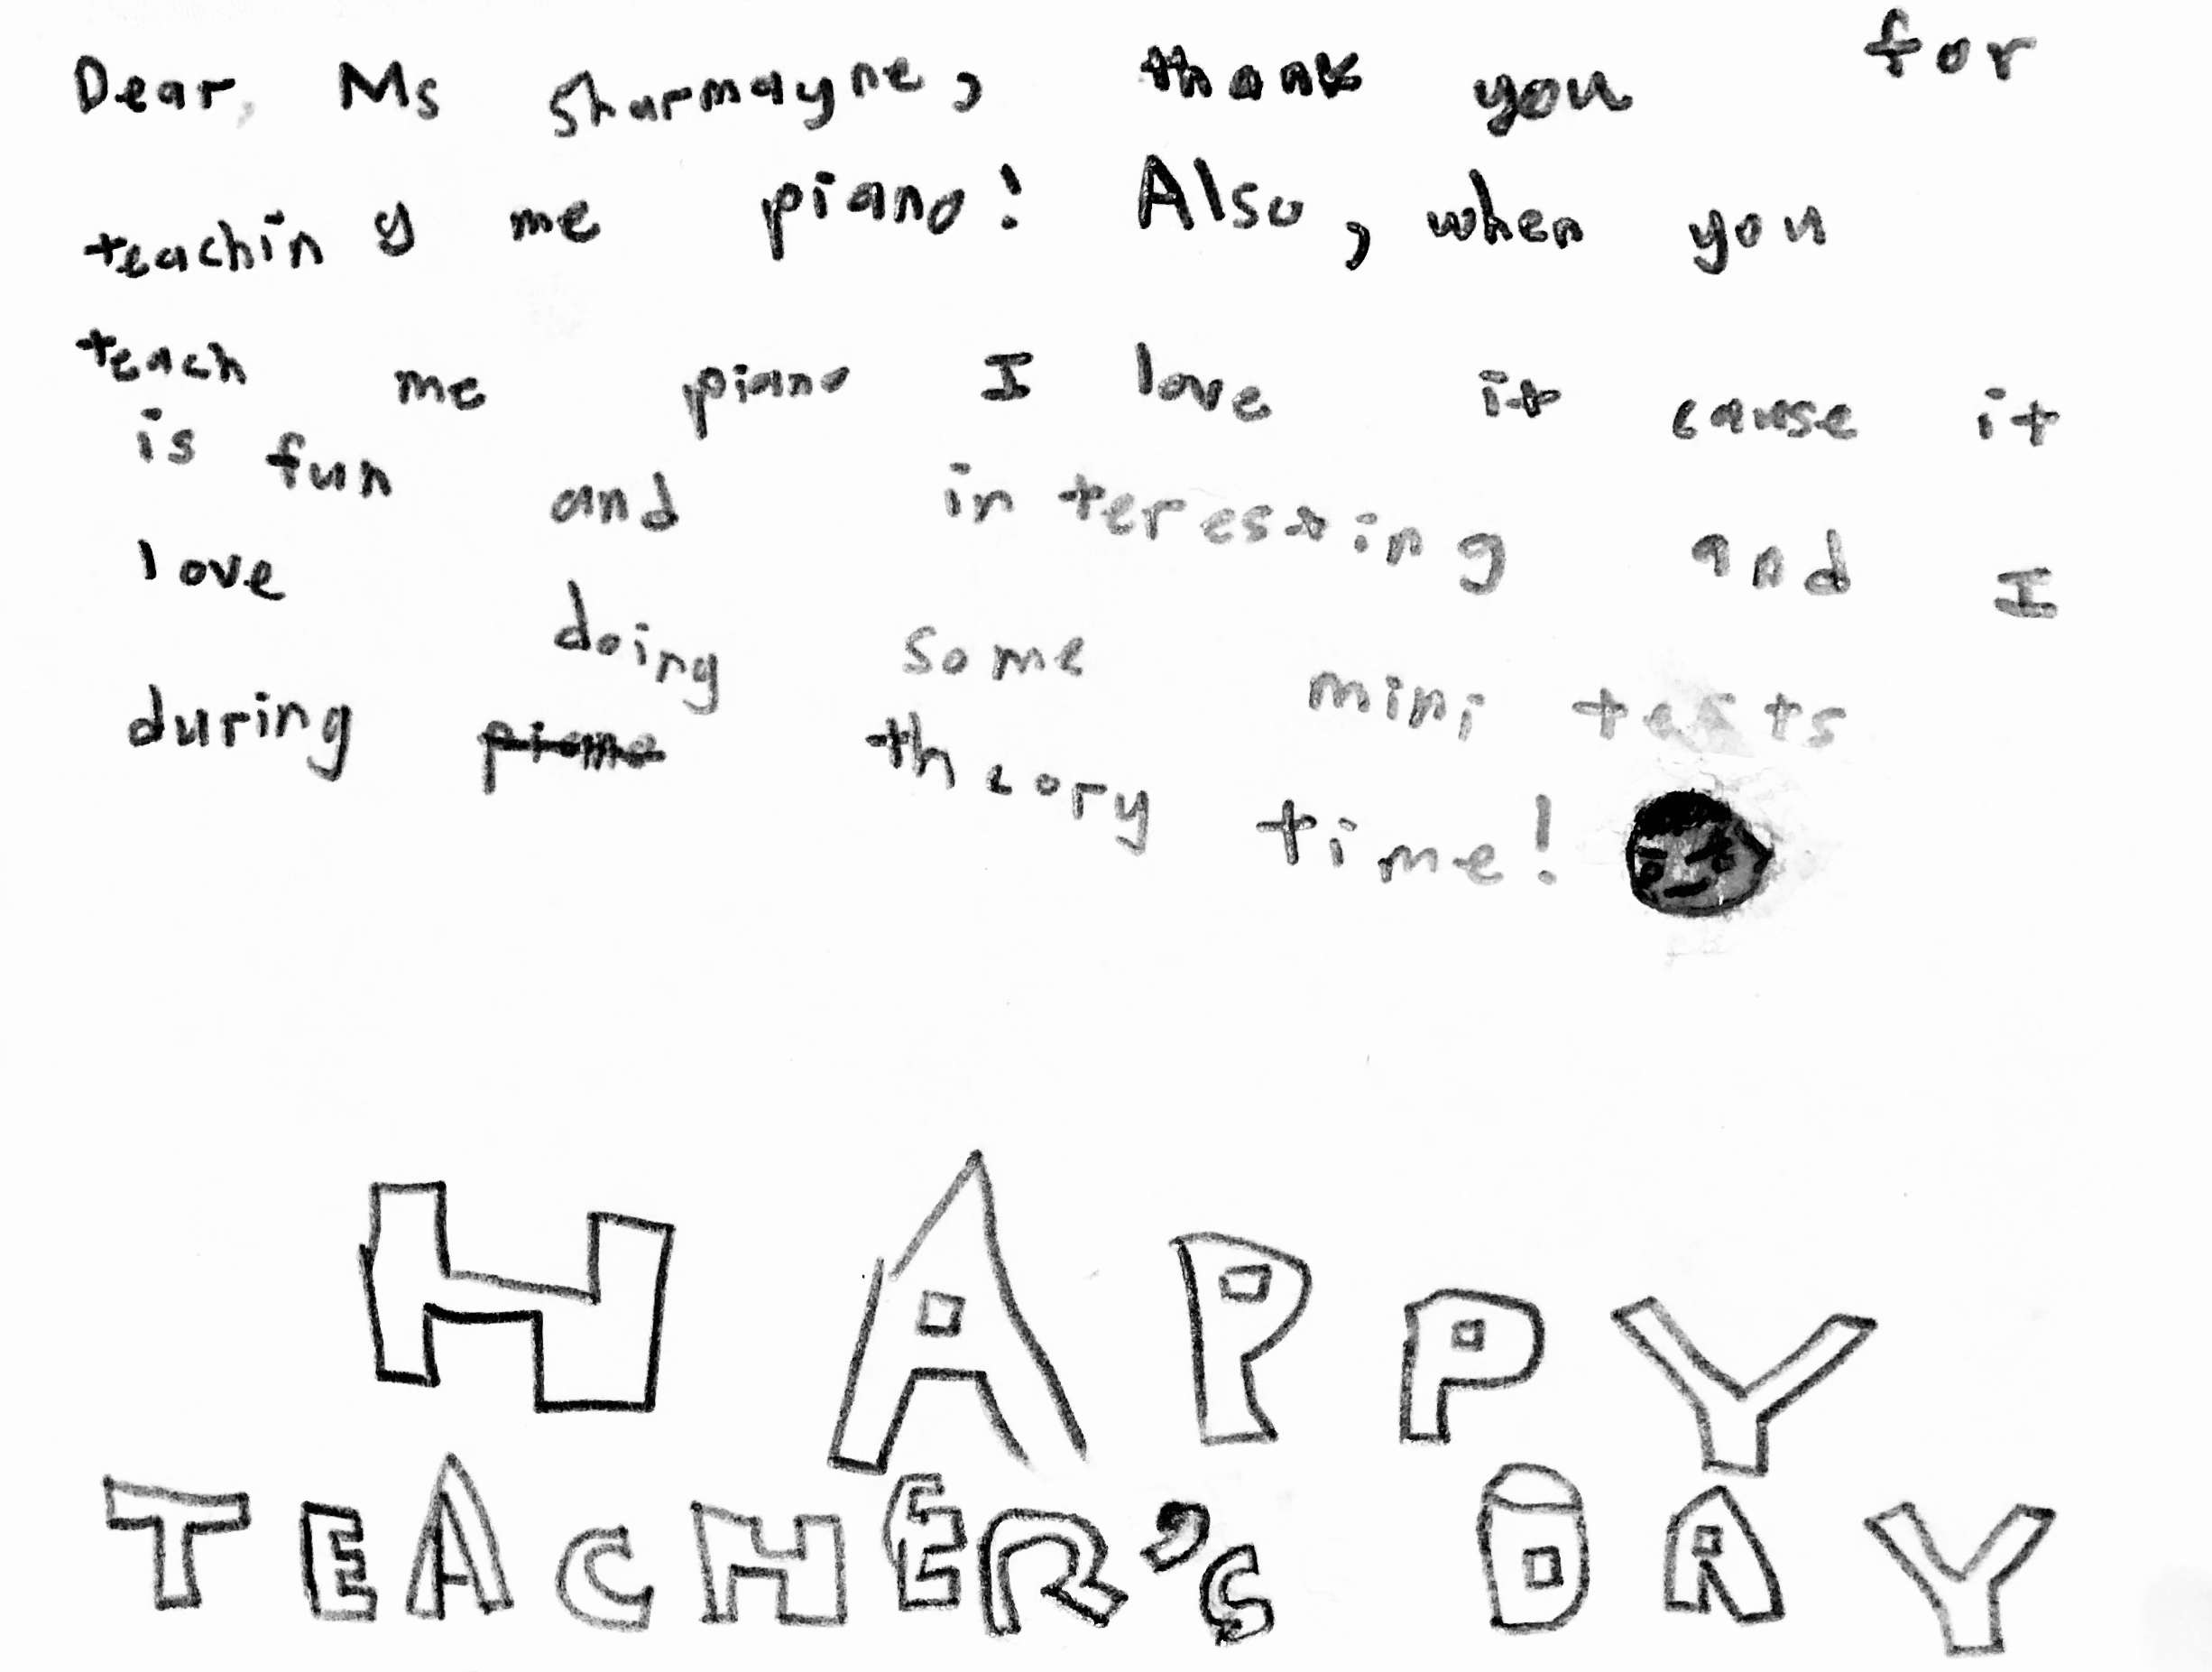 Dear, Ms Sharmayne, thank you for
teaching me piano! Also, when you
teach me piano I love it cause it
is fun and interesting and I
love doing some mini tests
during theory time!
HAPPY
TEACHER's DAY